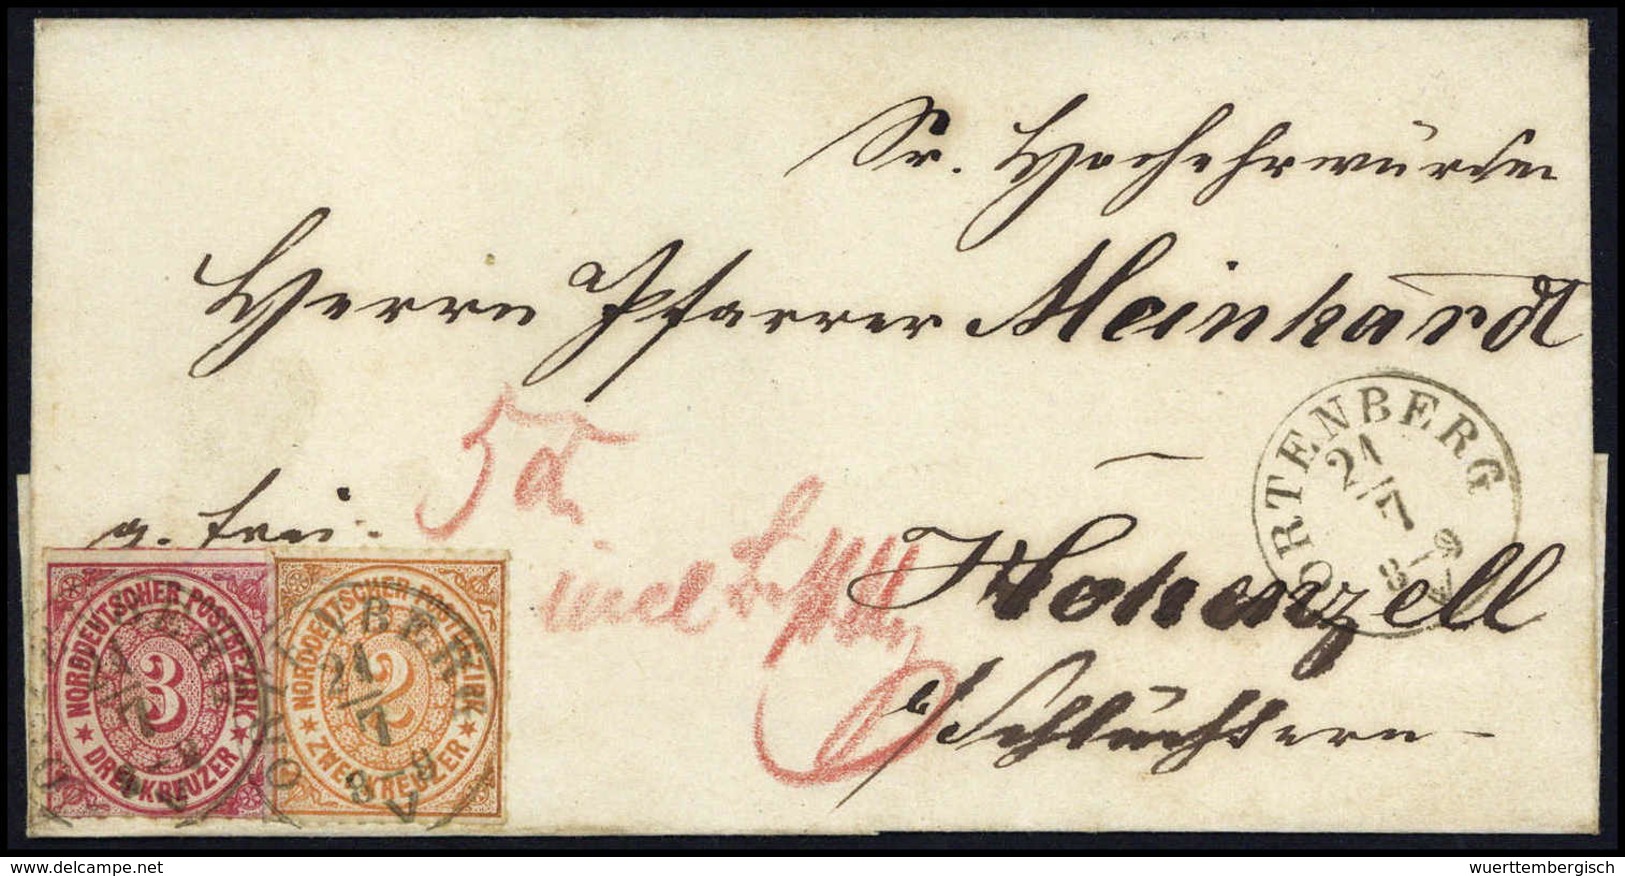 Sr. Hochehrwürden
Herrn Pfarrer Meinhardt
Hohenzell
b/Schlüchtern
g. frei.
5 d
incl
ORTENBERG
21/7
8-9
V
NORDDEUTSCHER POSTBEZIRK
3
DREI KREUZER
NORDDEUTSCHER POSTBEZIRK
2
ZWEI KREUZER
21/7
8-9
V
© www.delcampe.net
wuerttembergisch